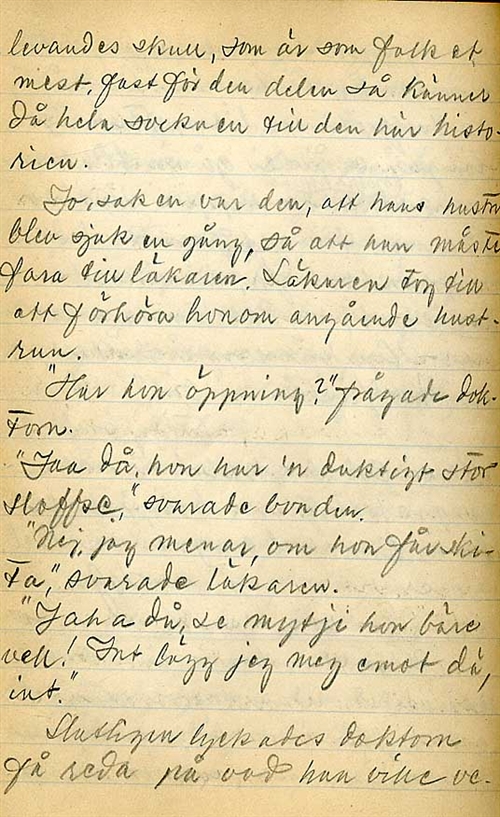 levandes skull, som är som folk et
mest, fast för den delen så känner
då hela socknen till den här histo-
rien.
Jo, saken var den, att hans hustru
blev sjuk en gång, så att han måste
fara till läkaren. Läkaren tog till
att förhöra honom angående hust-
run.
"Har hon öppning?" frågade dok-
torn.
"Jaa då, hon har 'n duktigt stor
sloffse," svarade bonden.
"Nej, jag menar, om hon får ski-
ta," svarade läkaren.
"Jaha då, se mytji hon bäre
vell! Int lägg jeg meg emot dä,
int."
Slutligen lyckades doktorn
få reda på vad han ville ve-